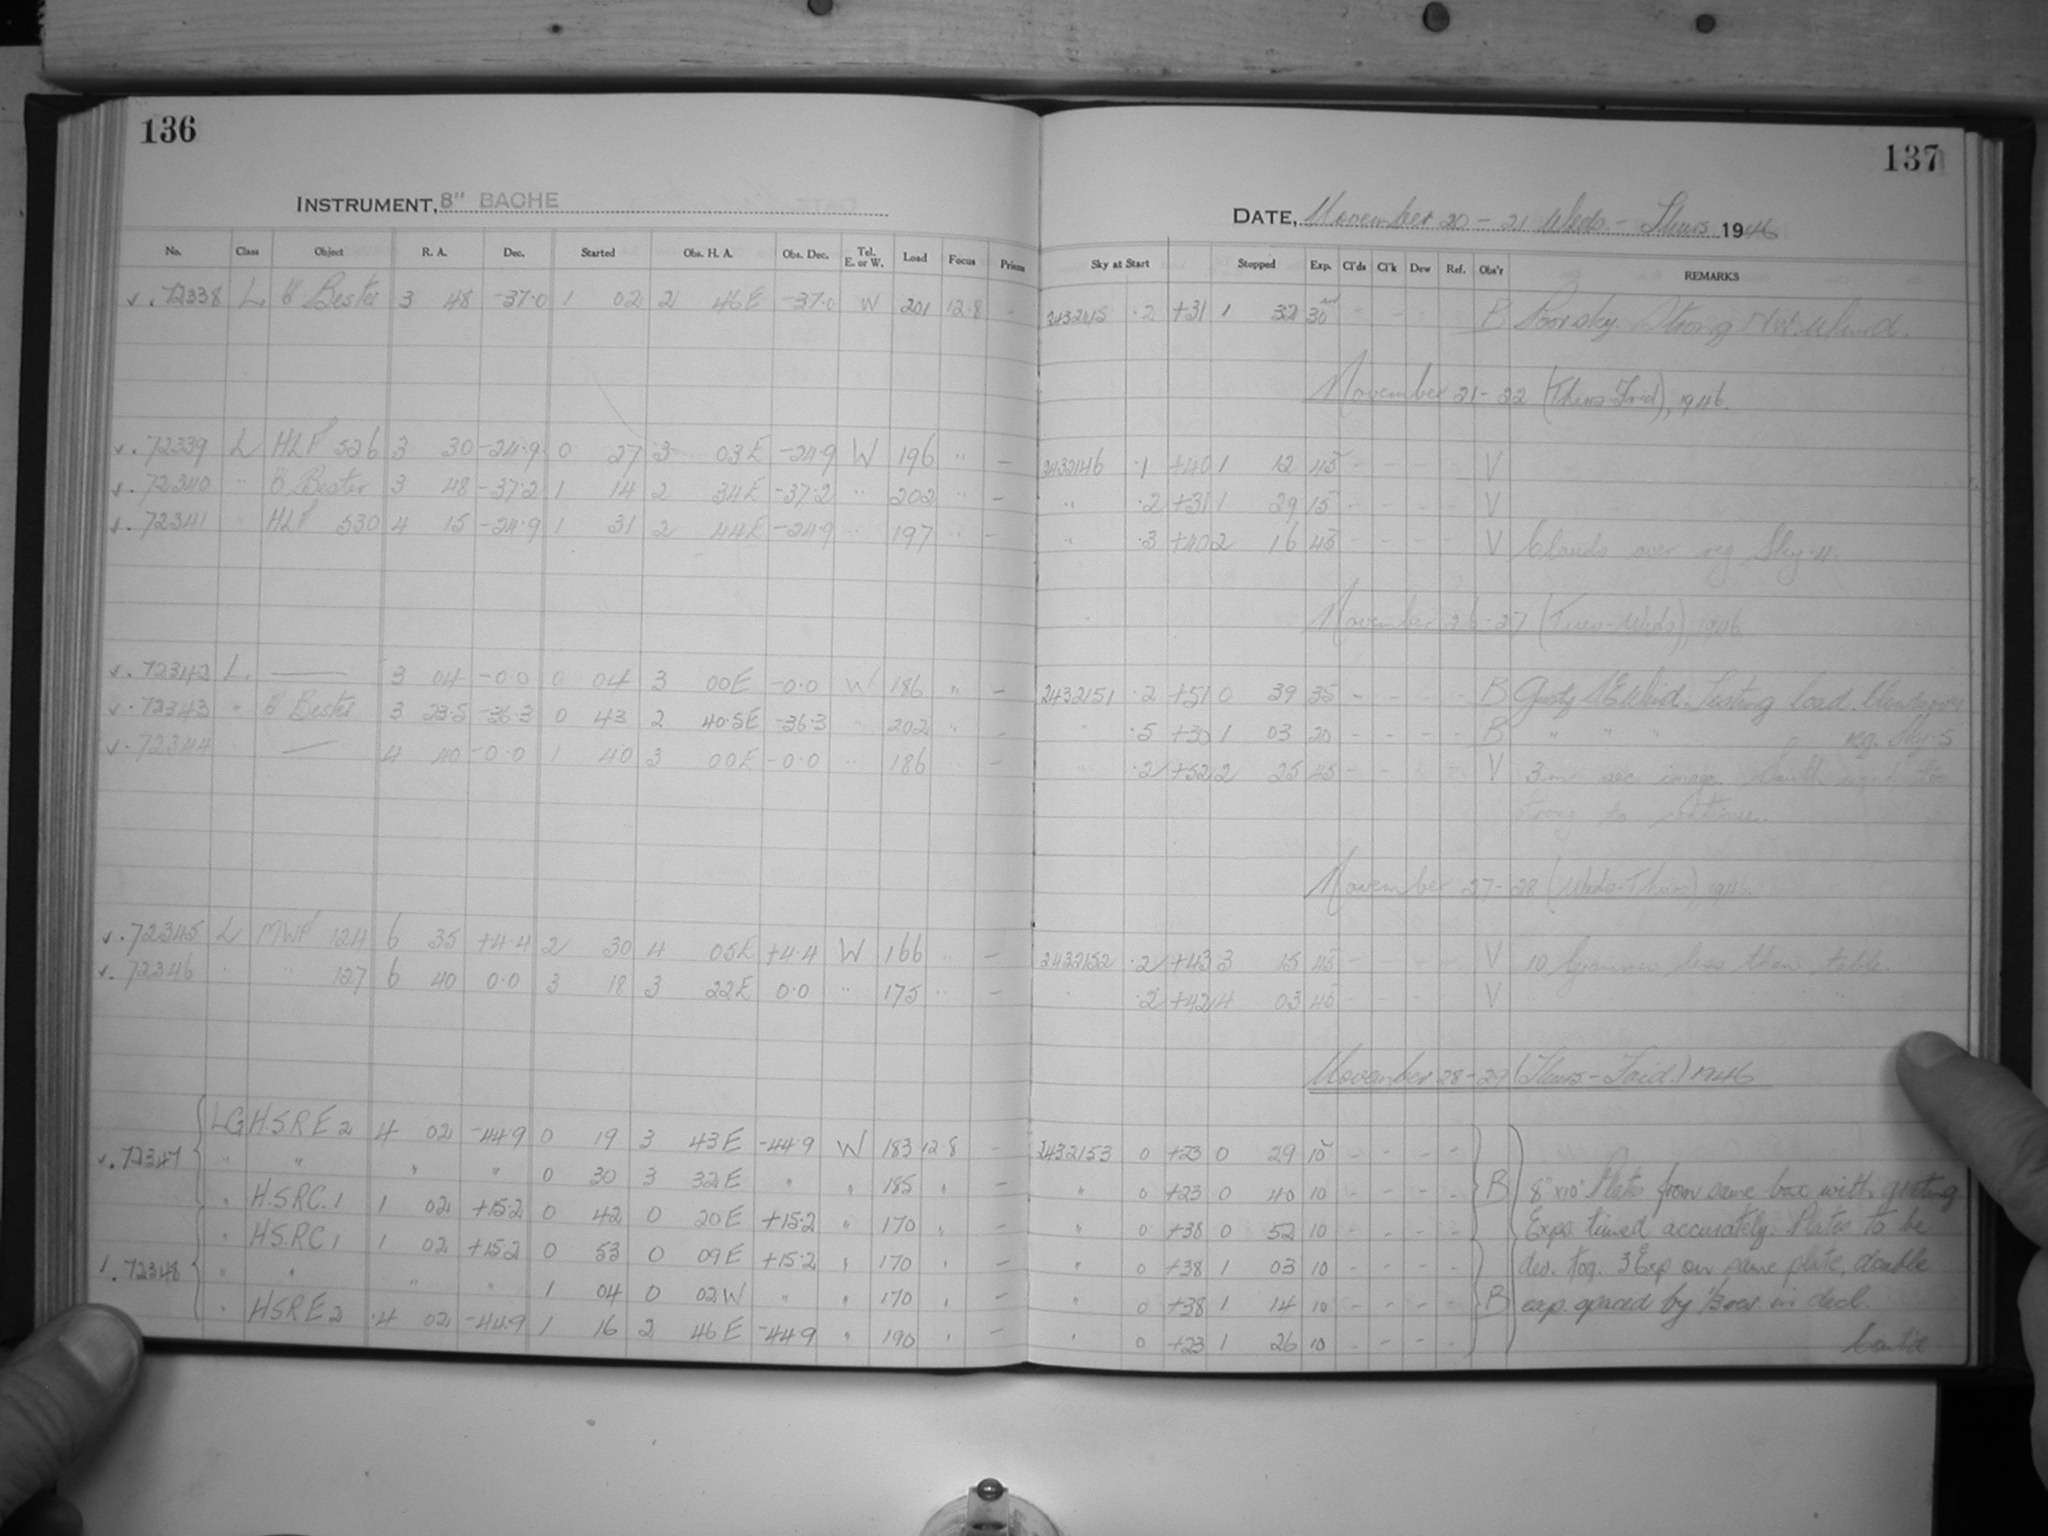 136
INSTRUMENT, 8" BACHE
No. Class Object R. A. Dec. Started Obs. H. A. Obs. Dec. Tel. E. or W. Load Focus Prisms
v . 72338 L ☄ Bester 3 48 -37.0 1 02 2 46E -37.0 W 201 12.8 -
v . 72339 L HLP 526 3 30 -24.9 0 27 3 03E -24.9 W 196 " -
v . 72340 " ☄ Bester 3 48 -37.2 1 14 2 34E -37.2 " 202 " -
v . 72341 " HLP 530 4 15 -24.9 1 31 2 44E -24.9 " 197 " -
v . 72342 L. — 3 04 -0.0 0 04 3 00E -0.0 W 186 " -
v . 72343 " ☄ Bester 3 23.5 -36.3 0 43 2 40.5E -36.3 " 202 " -
v . 72344 — 4 40 -0.0 1 40 3 00E -0.0 " 186 " -
v . 72345 L MWF 124 6 35 +4.4 2 30 4 05E +4.4 W 166 " -
v . 72346 " " 127 6 40 0.0 3 18 3 22E 0.0 " 175 " -
LG H.S.R E 2 4 02 -44.9 0 19 3 43E -44.9 W 183 12.8 -
v . 72347 " " " " 0 30 3 32E " " 185 -
" H.S.R C. 1 1 02 +15.2 0 42 0 20E +15.2 " 170 " -
" H.S.R C 1 1 02 +15.2 0 53 0 09E +15.2 " 170 " -
. 72348 " " " " 1 04 0 02W " " 170 " -
" H.S.R E 2 4 02 -44.9 1 16 2 46E -44.9 " 190 " -
137
DATE, November 20 - 21 Weds - Thurs 1946
Sky at Start Stopped Exp. Cl'ds Cl'k Dew Ref. Obs'r REMARKS
.2 +31 1 32 30 - - - - B Poor sky. Strong NW. Wind.
November 21 - 22 (Thurs-Frid), 1946.
2432146 .1 +40 1 12 45 - - - - V
" .2 +31 1 29 15 - - - - V
" .3 +40 2 16 45 - - - - V Clouds over reg Sky .4.
November 26 - 27 (Tues-Weds), 1946
2432151 .2 +51 0 39 35 - - - - B Gusty SE Wind. Testing load. Clouds over
" .5 +30 1 03 20 - - - - B " " " reg. Sky .5
" .2 +52 2 25 45 - - - - V 3 sec image. South wind too
strong to continue.
November 27 - 28 (Weds-Thurs), 1946.
2432152 .2 +43 3 15 45 - - - - V 10 Grammes less than table.
" .2 +42 4 03 45 - - - - V
November 28 - 29 (Thurs - Frid) 1946
2432153 0 +23 0 29 10 - - - -
" 0 +23 0 40 10 - - - - B 8"x10" Plates from same box with grating
" 0 +38 0 52 10 - - - - Expo timed accurately. Plates to be
" 0 +38 1 03 10 - - - - dev. tog. 3 Exp on same plate, double
" 0 +38 1 14 10 - - - - B exp. spaced by in decl.
" 0 +23 1 26 10 - - - - Cont'd